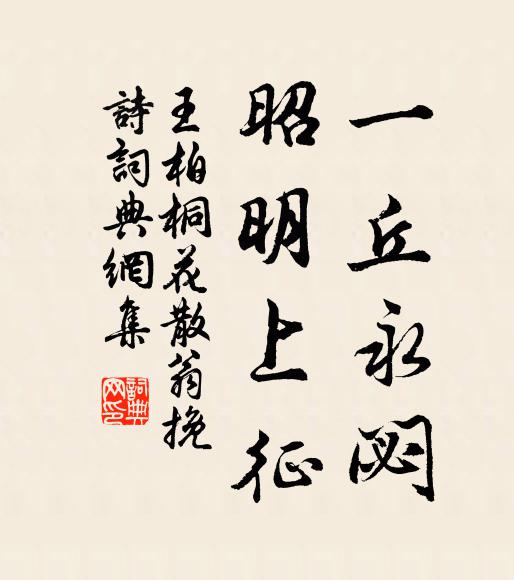 一丘永閟
昭明上征
王柏桐花散翁挽
詩詞典網集
詞典網印